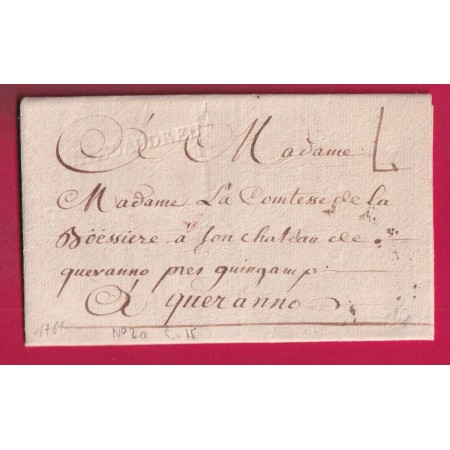 A Madame
Madame La Comtesse de la
Boëssiere à son chateau de
queranno pres guingamp
A queranno
No 2a C-18